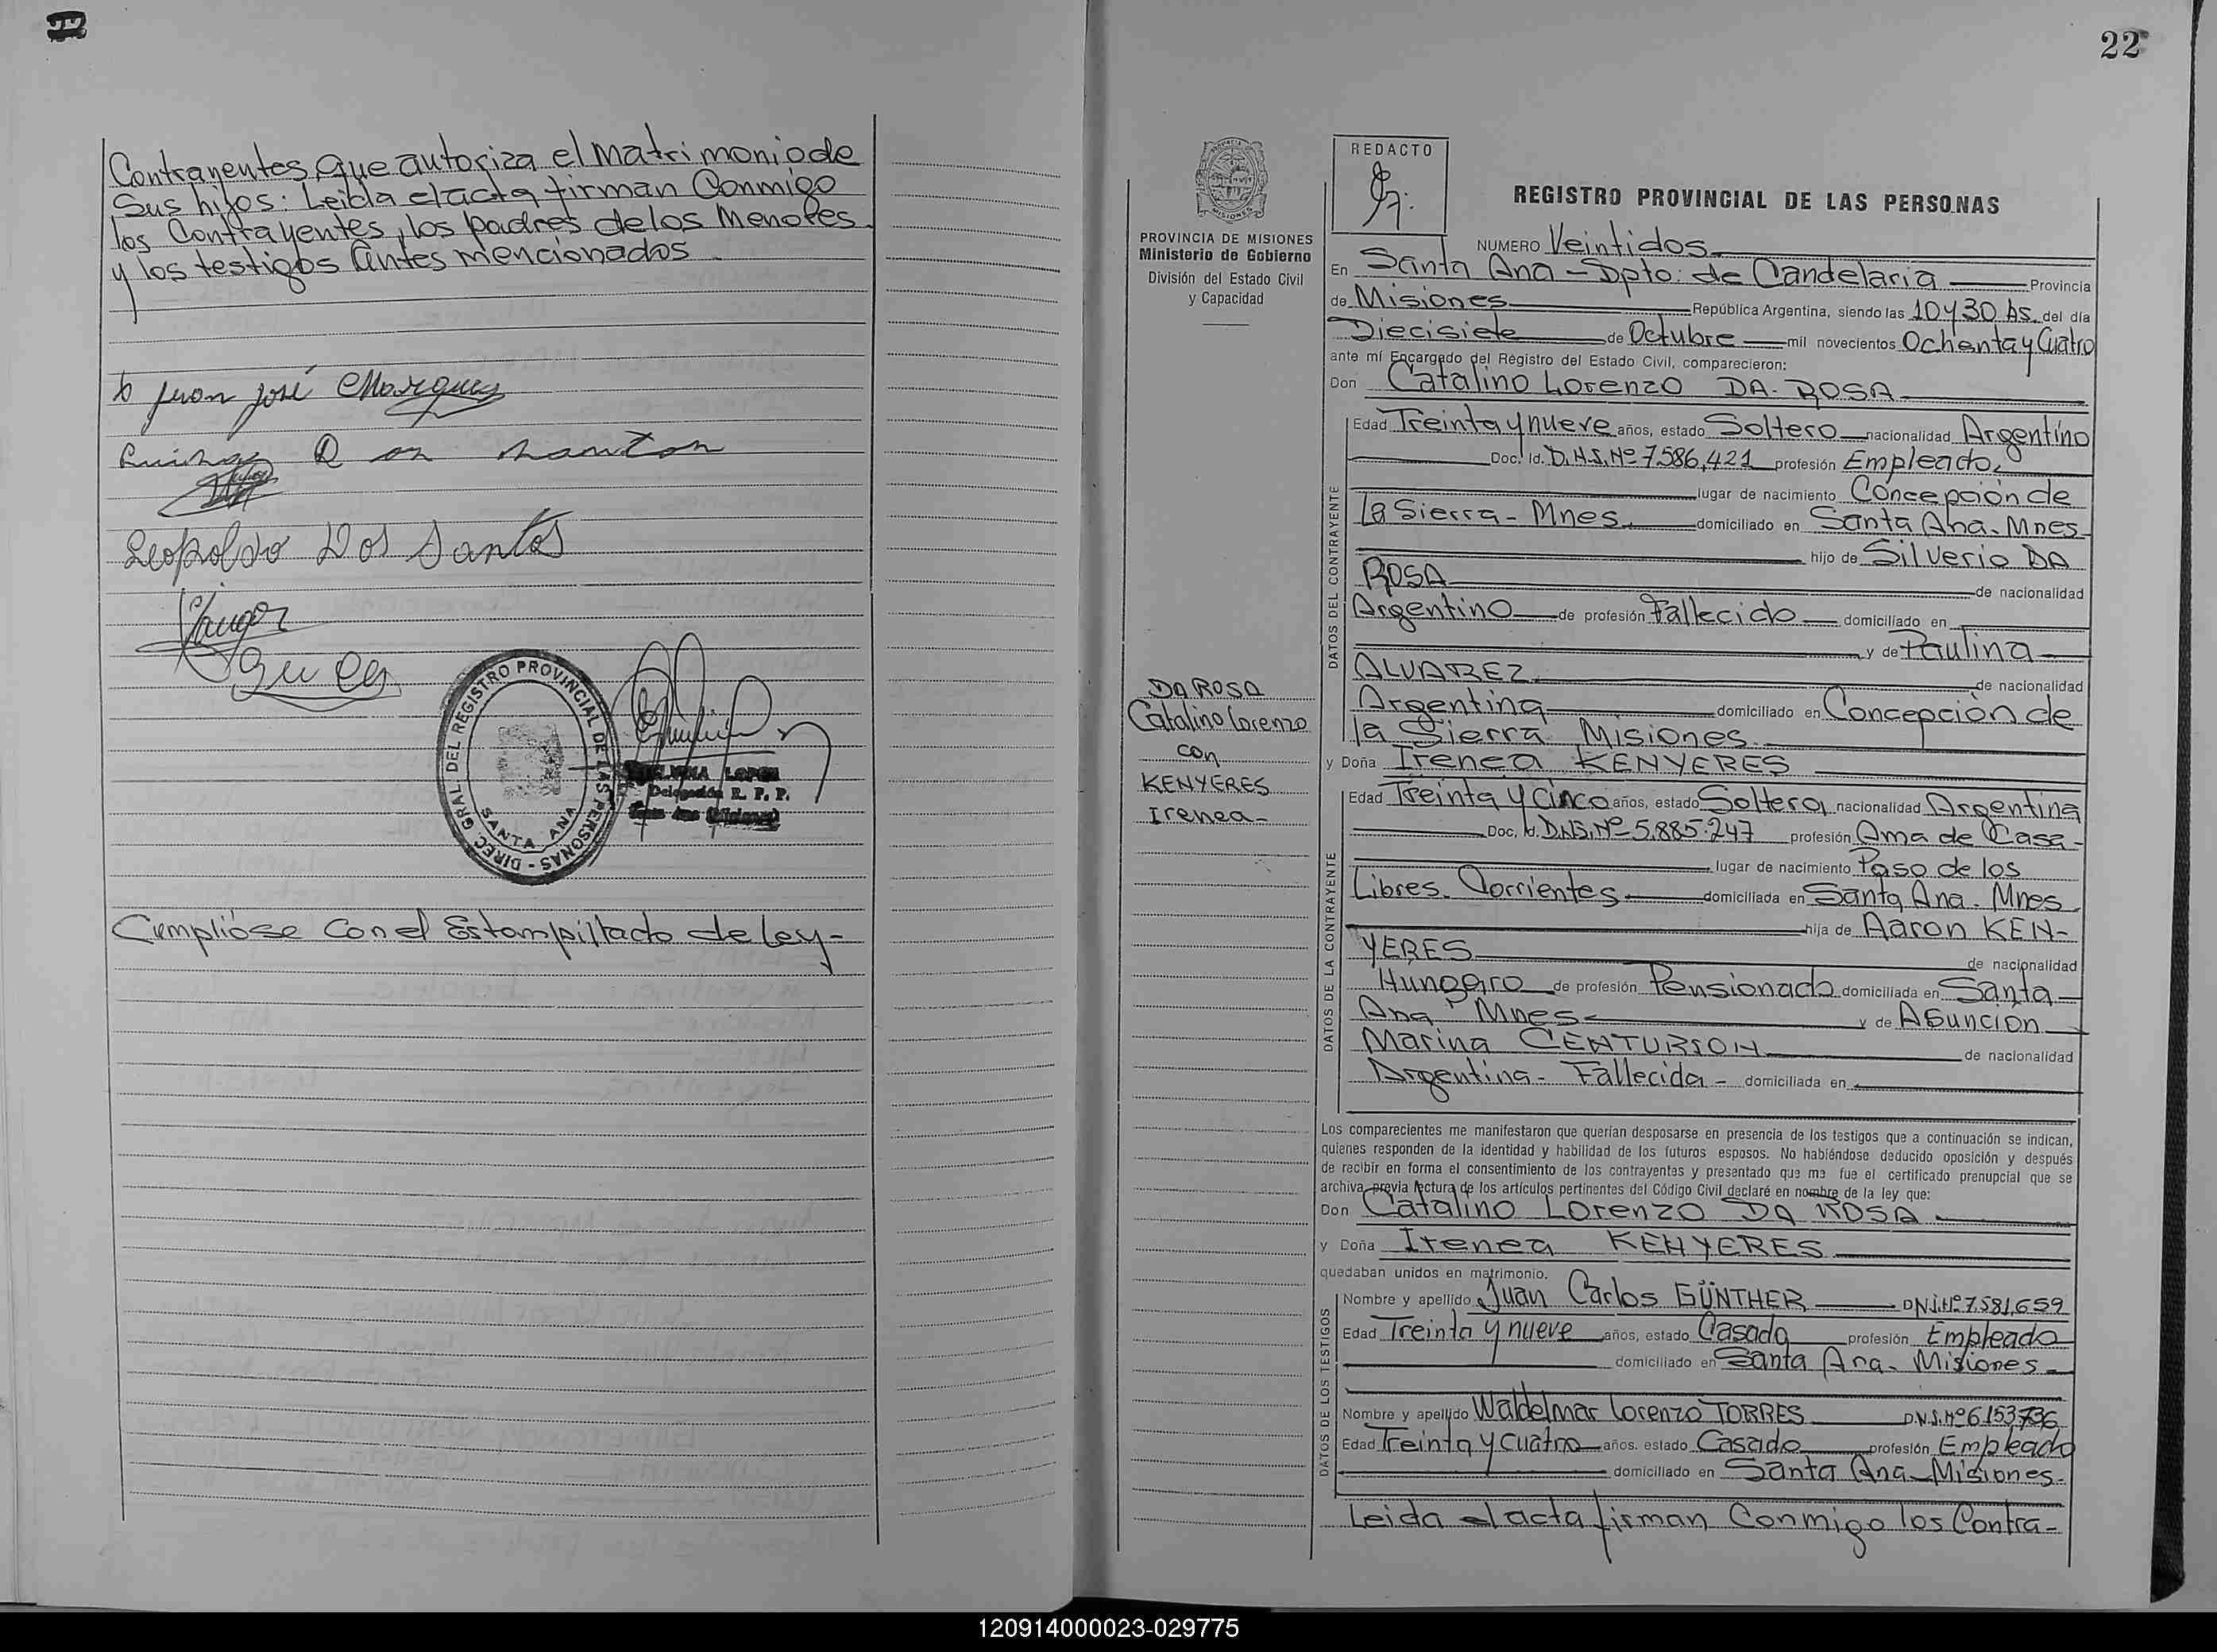 Contrayentes que autoriza el matrimonio de
Sus hijos: Leida el acta firman Conmigo
los Contrayentes, los padres de los Menores
y los testigos antes mencionados
Juan José Marques
Leopoldo Dos Santos
DIREC. GRAL DEL REGISTRO PROVINCIAL DE LAS PERSONAS -
SANTA ANA
LOPEZ
Delegación R. P. P.
Santa Ana (Misiones)
Cumplióse con el Estampillado de Ley-
22
PROVINCIA DE MISIONES
Ministerio de Gobierno
División del Estado Civil
y Capacidad
DA ROSA
Catalino Lorenzo
con
KENYERES
Irenea-
REDACTO
REGISTRO PROVINCIAL DE LAS PERSONAS
NUMERO Veintidos
En Santa Ana - Dpto: de Candelaria Provincia
de Misiones República Argentina, siendo las 10 y 30 hs. del día
Diecisiete de Octubre mil novecientos Ochenta y Cuatro
ante mí Encargado del Registro del Estado Civil, comparecieron:
Don Catalino Lorenzo DA-ROSA
DATOS DEL CONTRAYENTE
Edad Treinta y nueve años, estado Soltero nacionalidad Argentino
Doc. Id. D.N.I. Nº 7.586,421 profesión Empleado
lugar de nacimiento Concepción de
la Sierra - Mnes. domiciliado en Santa Ana- Mnes
hijo de Silverio DA
ROSA de nacionalidad
Argentino de profesión Fallecido domiciliado en
y de Paulina
ALVAREZ de nacionalidad
Argentina domiciliado en Concepción de
la Sierra Misiones.
y Doña Irenea KENYERES
DATOS DE LA CONTRAYENTE
Edad Treinta y Cinco años, estado Soltera nacionalidad Argentina
Doc. Id. D.N.I. Nº 5.885.247 profesión Ama de Casa-
lugar de nacimiento Paso de los
Libres. Corrientes domiciliada en Santa Ana. Mnes
hija de Aaron KEN-
YERES de nacionalidad
Hungaro de profesión Pensionado domiciliada en Santa
Ana Mnes- y de Asunción
Marina CENTURION de nacionalidad
Argentina- Fallecida - domiciliada en
Los comparecientes me manifestaron que querían desposarse en presencia de los testigos que a continuación se indican,
quienes responden de la identidad y habilidad de los futuros esposos. No habiéndose deducido oposición y después
de recibir en forma el consentimiento de los contrayentes y presentado que me fue el certificado prenupcial que se
archiva previa lectura de los artículos pertinentes del Código Civil declaré en nombre de la ley que:
Don Catalino Lorenzo DA ROSA
y Doña Irenea KENYERES
quedaban unidos en matrimonio.
DATOS DE LOS TESTIGOS
Nombre y apellido Juan Carlos GÜNTHER DNI.Nº 7.581,659
Edad Treinta y nueve años, estado Casado profesión Empleado
domiciliado en Santa Ana- Misiones
Nombre y apellido Waldelmar Lorenzo TORRES D.N.I. Nº 6.153.736
Edad Treinta y cuatro años. estado Casado profesión Empleado
domiciliado en Santa Ana-Misiones.
Leida el acta firman Conmigo los Contra-
120914000023-029775